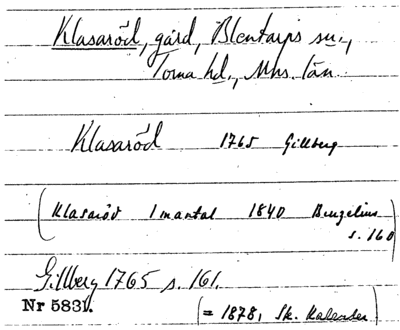 Klasaröd, gård, Blentarps sn.,
Torna hd., Mhs. län.
Klasaröd 1765 Gillberg
(Klasaröd 1 mantal 1840 Bengelius
s. 160
Gillberg 1765 s. 161.
Nr 5831. (= 1878, Sk. Kalender)